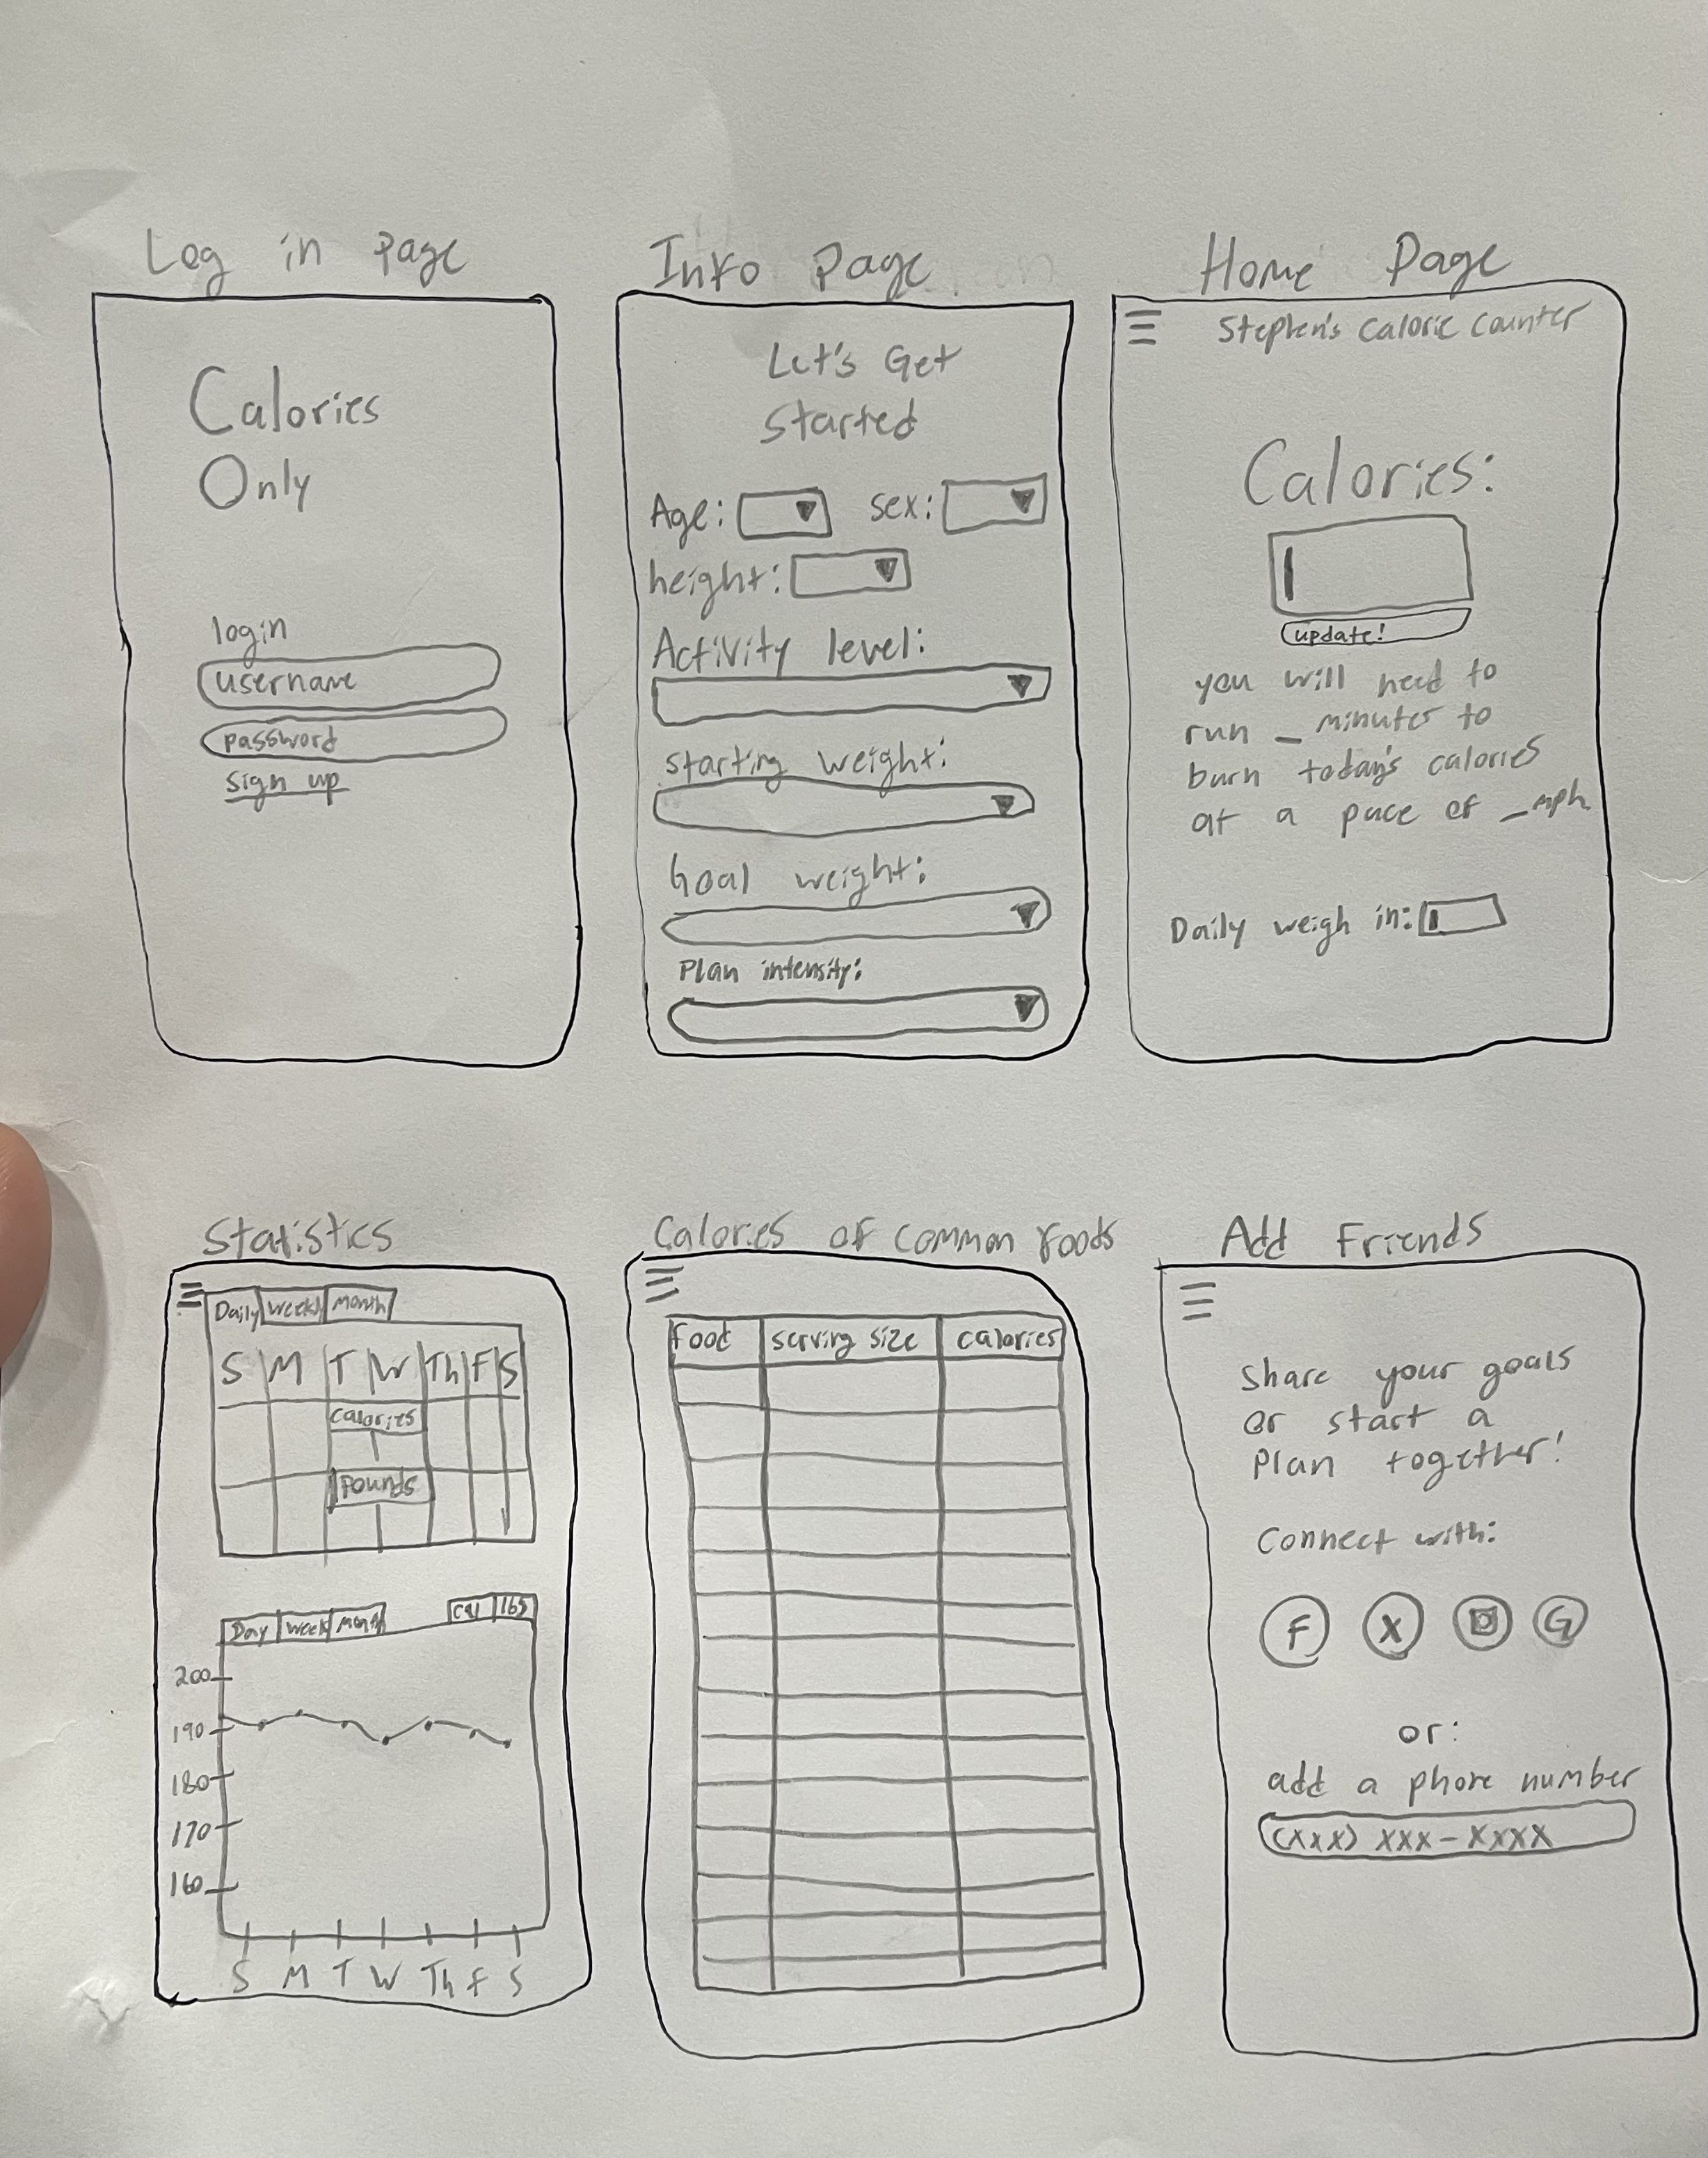 Log in page
Calories
Only
login
username
password
sign up
Info Page
Let's Get
Started
Age: sex:
height:
Activity level:
starting weight:
Goal weight:
Plan intensity:
Home Page
Stephen's calorie counter
Calories:
update!
you will need to
run _ minutes to
burn today's calories
at a pace of _mph
Daily weigh in:
Statistics
Daily Weekly Month
S M T W Th F S
calories
Pounds
Day Week Month cal lbs
200
190
180
170
160
S M T W Th F S
Calories of common foods
Food serving size calories
Add Friends
Share your goals
or start a
Plan together!
Connect with:
F X G
or:
add a phone number
(xxx) xxx-xxxx